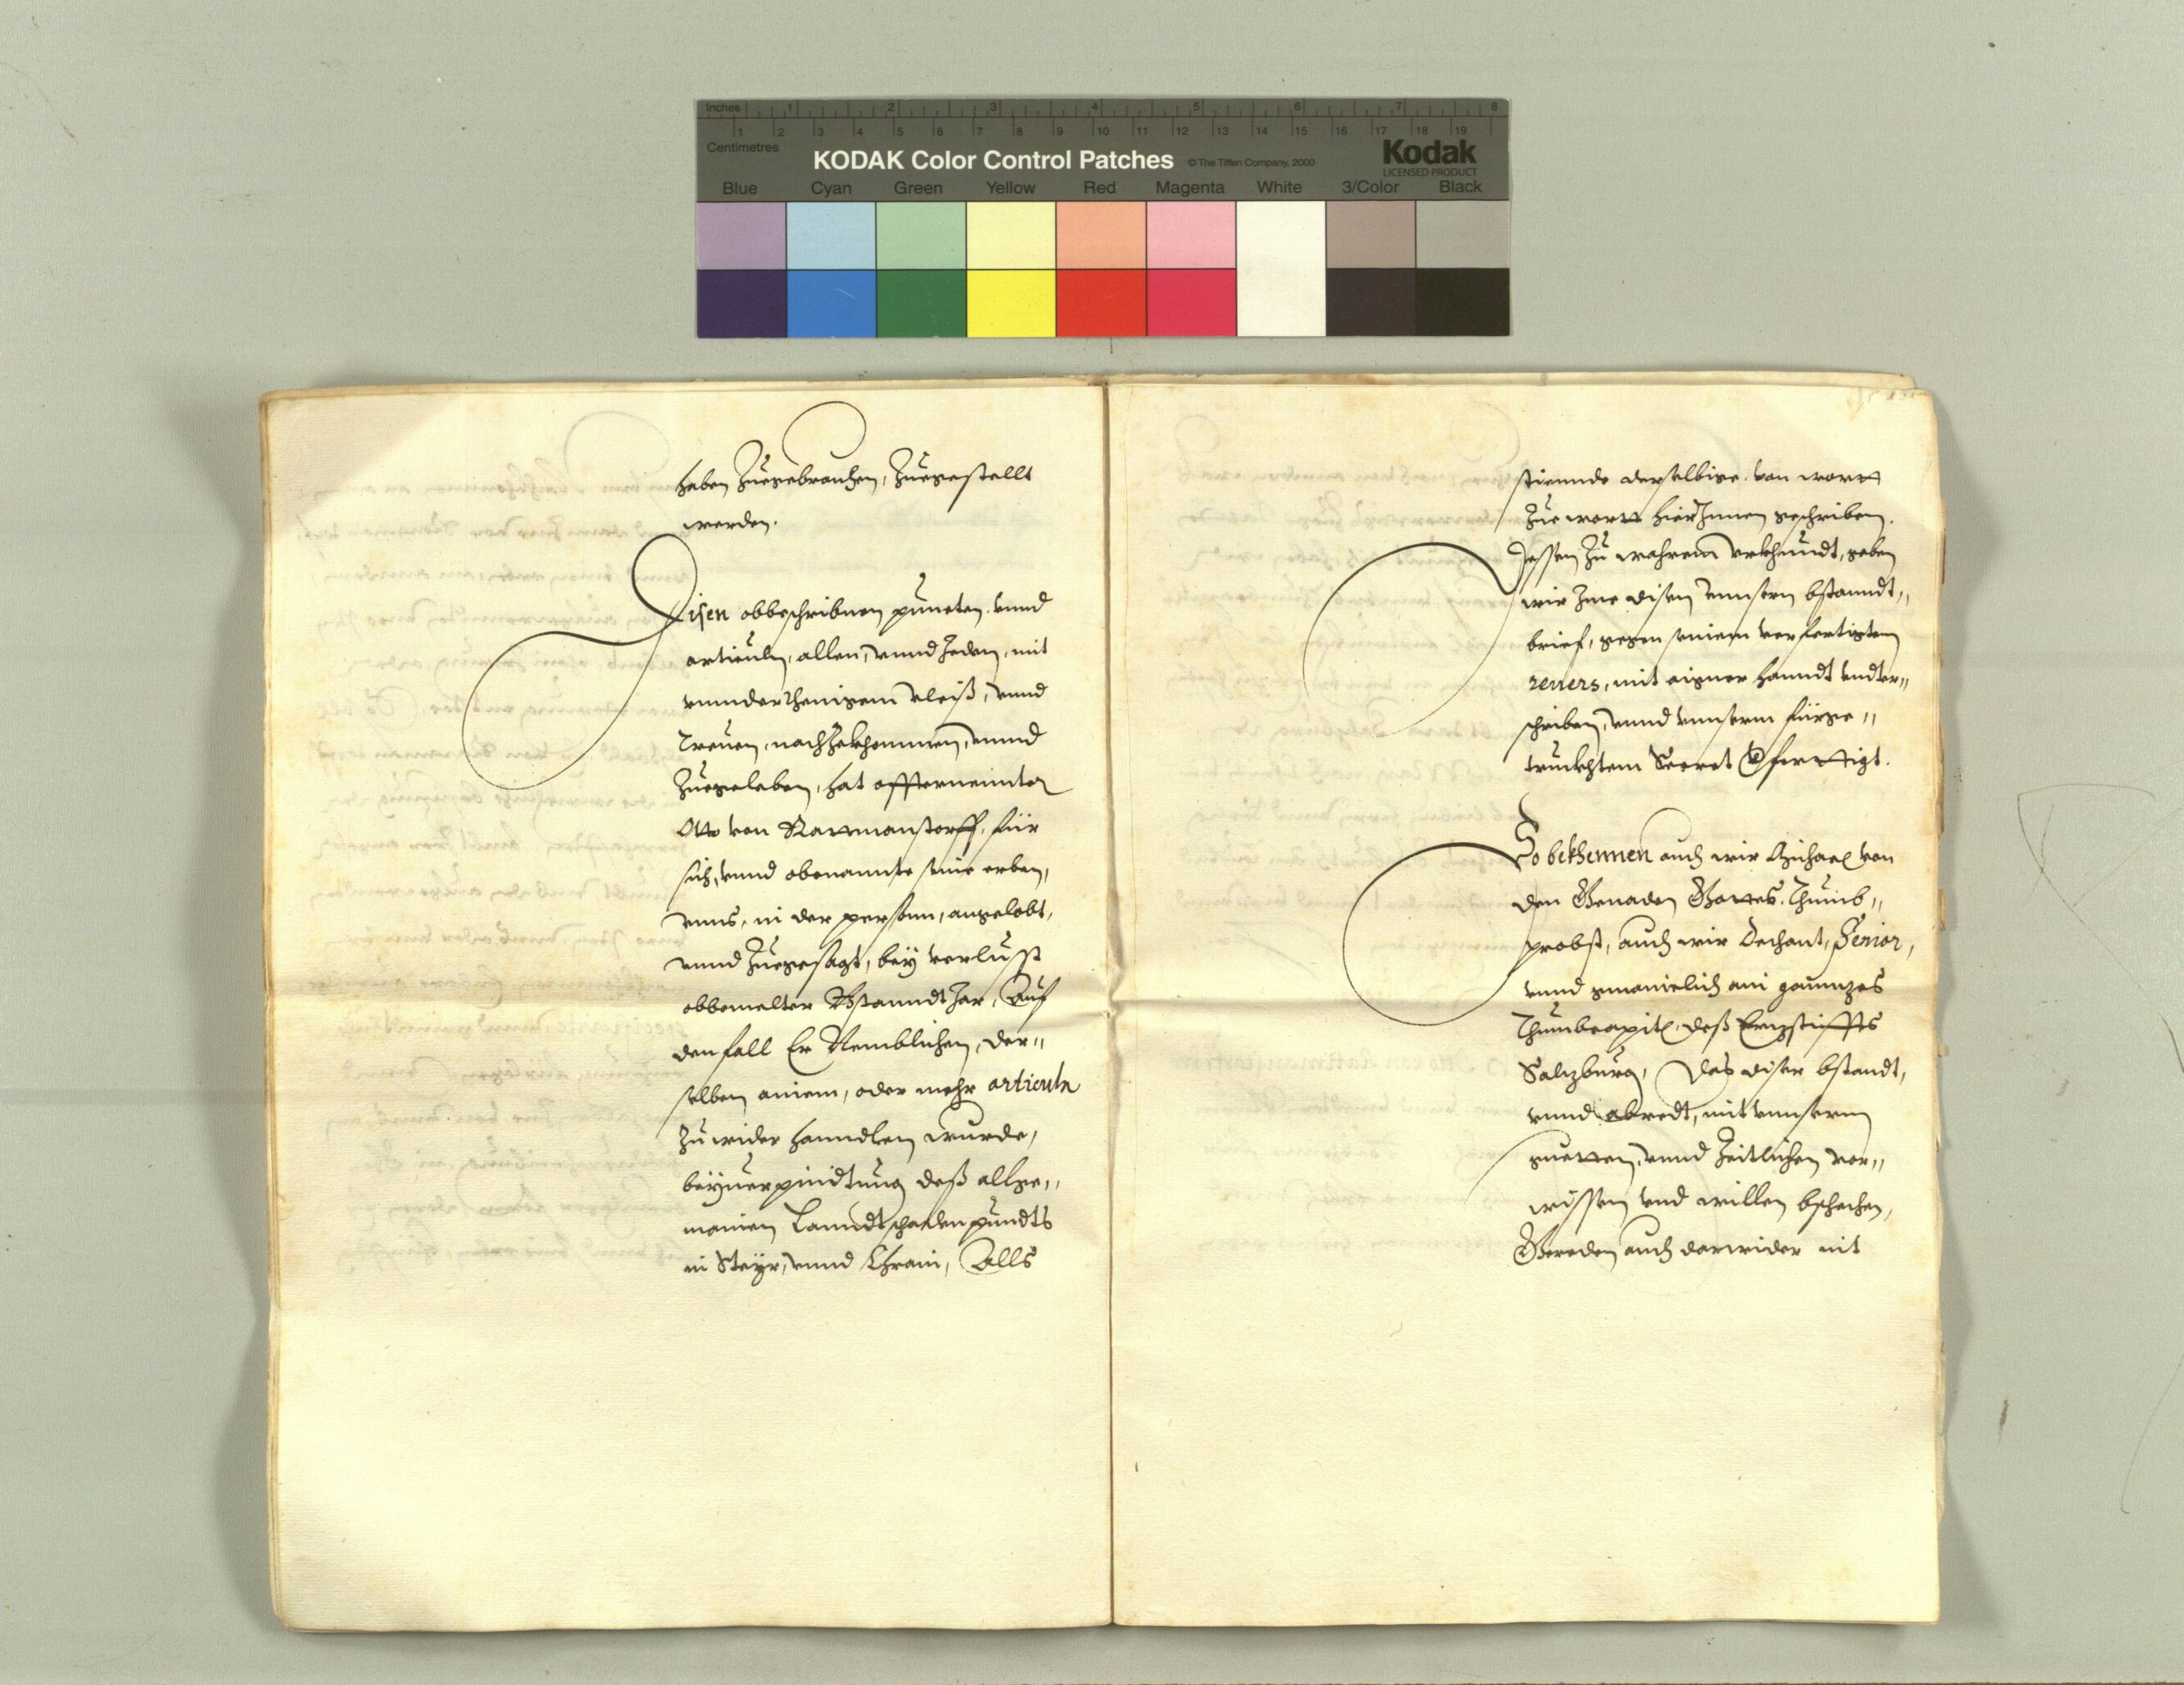 Inches 1 2 3 4 5 6 7 8
1 2 3 4 5 6 7 8 9 10 11 12 13 14 15 16 17 18 19
Centimetres
KODAK Color Control Patches © The Tiffen Company, 2000 Kodak
LICENSED PRODUCT
Blue Cyan Green Yellow Red Magenta White 3/Color Black
haben Zuegebrauchen, Zuegestellt
werden.
Disen obbeschribnen puncten vnnd
articuln, allen, vnnd Jeden, mit
vnnderthenigem vleiß, vnnd
Treuen, nachZekhommen, vnnd
Zuegeleben, hat offternennter
Otto von Rattmanstorff, für
sich, vnnd obenannte seine erben,
vnns, in der person, angelobt,
vnnd Zuegesagt, bey verlusst
obbemelter Bstanndt Jar, Auf
den fall Er Nemblichen, der„
selben ainem, oder mehr articuln
Zuwider hanndlen wurde,
beyuerpindtung deß allge„
mainen Lanndtschadenpundts
in Steyr, vnnd Khrain, Alls
stiennde derselbige von wortt
Zue wortt hierJnnen geschriben.
Dessen Zu wahrem vrkhundt, geben
wir Jme disen vnnsern bstanndt„
brief, gegen seinem verfertigtem
reuers, mit aigner Hanndt vndter„
schriben, vnnd vnnserm fürge„
truckhtem Secret Verferttigt.
So bekhennen auch wir Michael von
den Genaden Gottes Thumb„
probst, auch wir Dechant, Senior,
vnnd gmainelich ain gannzes
Thumbcapitl deß Erzstiffts
Salzburg, Das diser bstandt,
vnnd abredt, mit vnnserm
guetten, vnnd Zeitlichen vor„
wissen vnd willen bschechen,
Gereden auch darwider nit